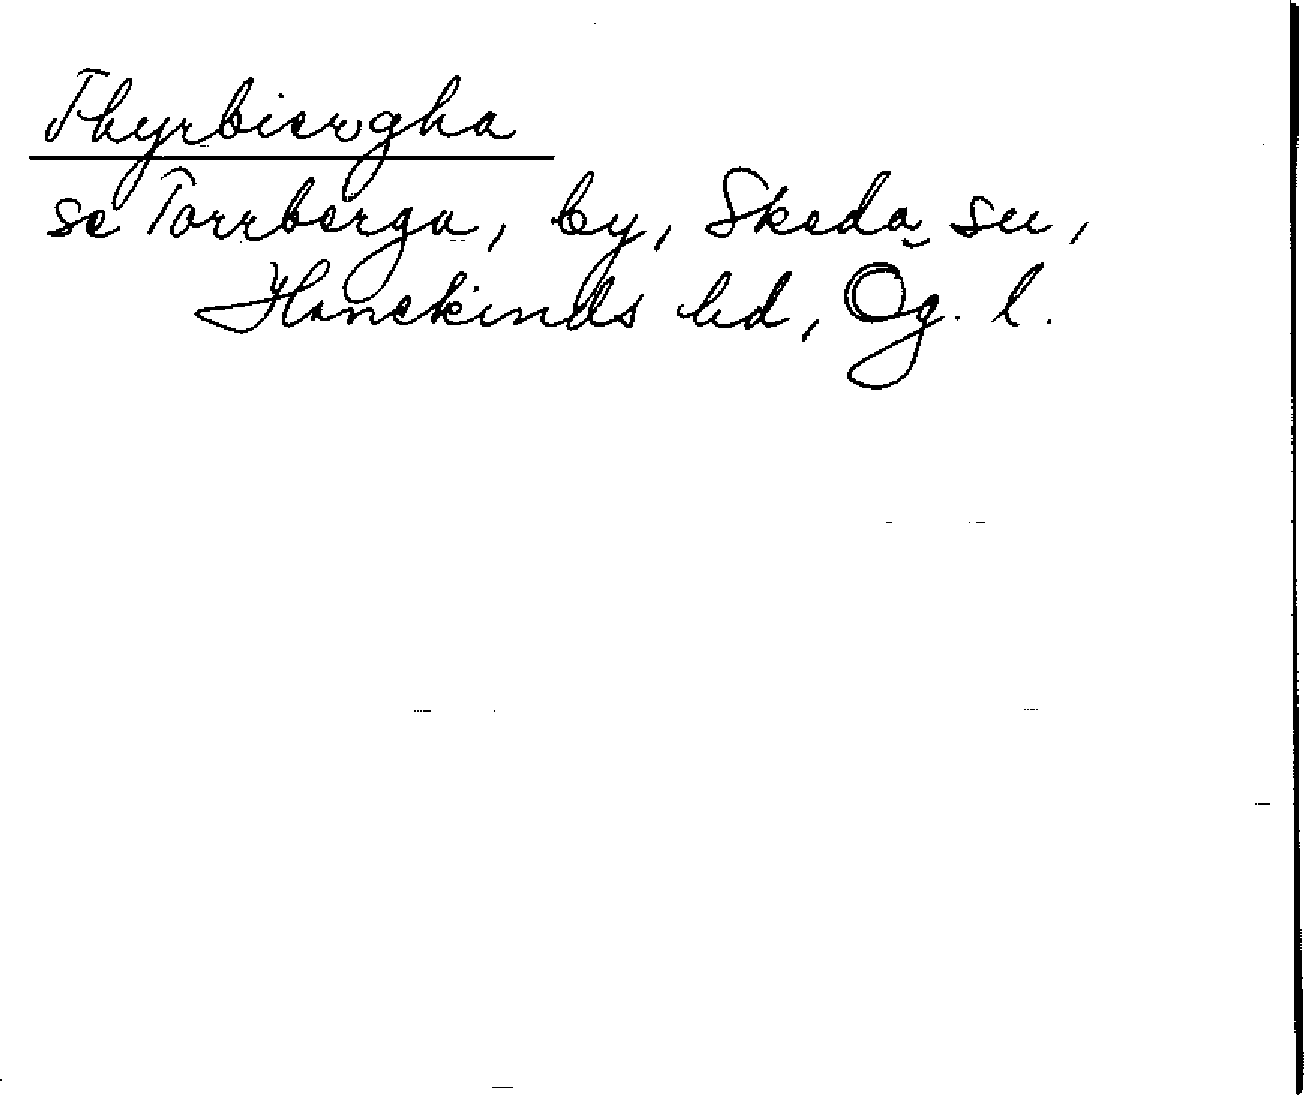 Thyrbiergha
se Torrberga, by, Skeda sn,
Hanekinds hd, Ög. l.